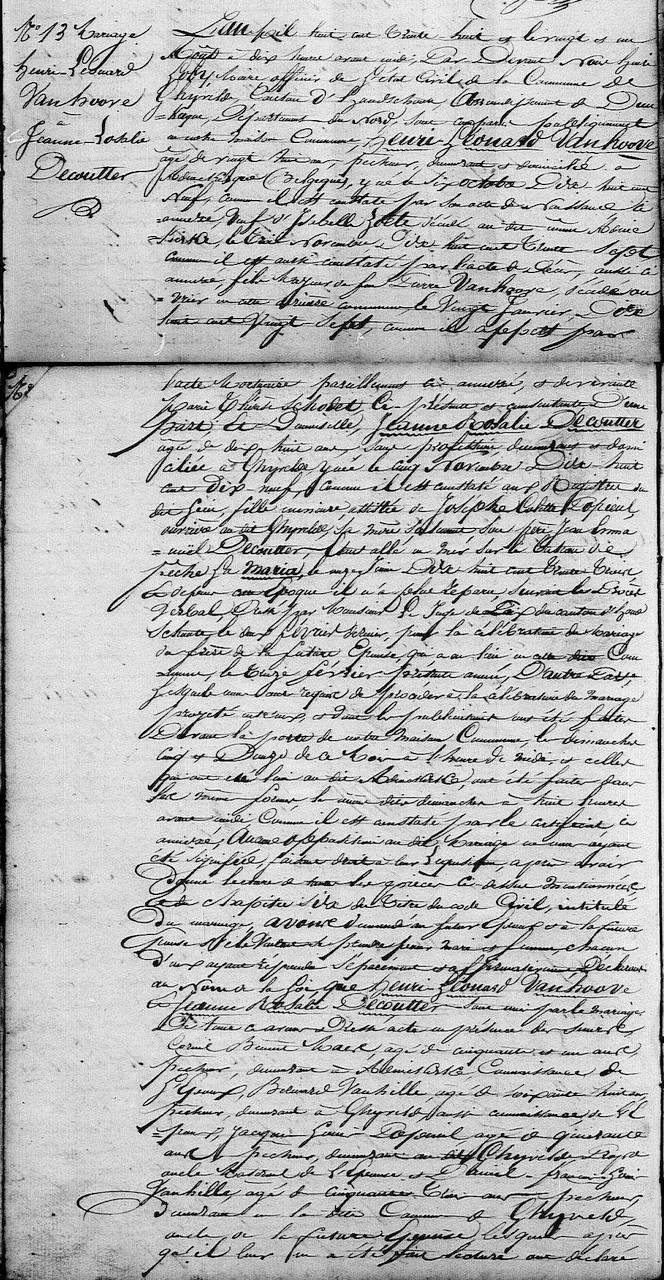 N° 13 Mariage
Henri-Léonard
Vanhoove
à
Jeanne-Rosalie
Decoutter
L'an mil huit cent trente-huit le vingt et un
Août à dix heures avant midi, Par Devant Nous
Maire officier de l'état Civil de la Commune de
Ghyvelde, Canton d'Hondschoote, Arrondissement de Dun-
=kerque, Département du Nord, sont comparu publiquement
en notre maison Commune, Henri Léonard Vanhoove
âgé de vingt huit ans, pêcheur, demeurant et domicilié à
(Belgique), y né le six octobre Dix huit cent
Neuf, comme il est constaté par son acte de Naissance ci
annexé, Veuf d'Isabelle décédée au dit
le trois Novembre Dix huit cent trente Sept
comme il est aussi constaté par l'acte de Décès, aussi ci
annexé, fils Majeur de feu Pierre Vanhoove, décédé ou-
vrier en cette commune, le Vingt Janvier Dix
huit cent Vingt Sept, comme il appert par
l'acte Mortuaire pareillement ci annexé, et de vivante
Marie Thérèse ci présente et consentante d'une
part et Demoiselle, Jeanne Rosalie Decoutter
âgée de dix huit ans, sans profession demeurant et domi
ciliée à Ghyvelde y née le cinq Novembre Dix huit
cent Dix neuf, comme il est constaté aux Registres du
dit lieu, fille mineure assistée de Josephe
ouvrière au dit Ghyvelde, sa mère son père Jean Emma
=nuel Decoutter étant allé en mer sur le bateau de
pêche La Maria, le onze Juin Dix huit cent trente
& depuis cette époque il n'a plus reparu suivant le Procès
Verbal, Dressé par Monsieur Le Juge de Paix du canton d'Hond
Schoote le deux février dernier, pour la célébration du Mariage
du frère de la future Epouse, qui a eu lieu en cette dite Com
=mune, le treize février présente année, D'autre Part
lesquels nous ont requis de procéder à la célébration du mariage
projeté entr'eux et dont les publications ont été faites
Devant la porte de notre Maison Commune, le dimanches
cinq et Douze de ce Mois à l'heure de midi, et celles
qui ont eu lieu au dit ont été faites dans
la même forme, le mêmes dits dimanches à huit heures
avant midi Comme il est constaté par le certificat, ci
annexé; Aucune opposition au dit Mariage ne nous ayant
été signifiée, faisant droit à leur réquisition, après avoir
Donné lecture de toutes les pièces ci dessus mentionnées
& de chapitre Six du titre du code Civil, intitulé
Du mariage, avons demandé au futur époux et à la future
épouse s'ils veulent se prendre pour mari et femme, chacun
d'eux ayant répondu Séparément et affirmativement Déclarons
au Nom de la Loi que Henri Léonard Vanhoove
& Jeanne Rosalie Decoutter sont unis par le mariage
De tout ce avons Dressé acte en présence des sieurs
âgé de cinquante et un ans,
pêcheur, demeurant à connaissance de
l'Epoux, Bernard Vanhille, âgé de soixante huit ans
pêcheur, demeurant à Ghyvelde aussi connaissance de l'E
=poux, Jacques Louis âgé de quarante
ans pêcheur, demeurant au dit Ghyvelde
oncle Maternel de l'Epouse et Daniel François Louis
Vanhille, âgé de cinquante trois ans pêcheur
Demeurant en la dite Commune de Ghyvelde,
oncle, de la future Epouse, lesquels après
qu'il leur en a été fait lecture ont déclaré